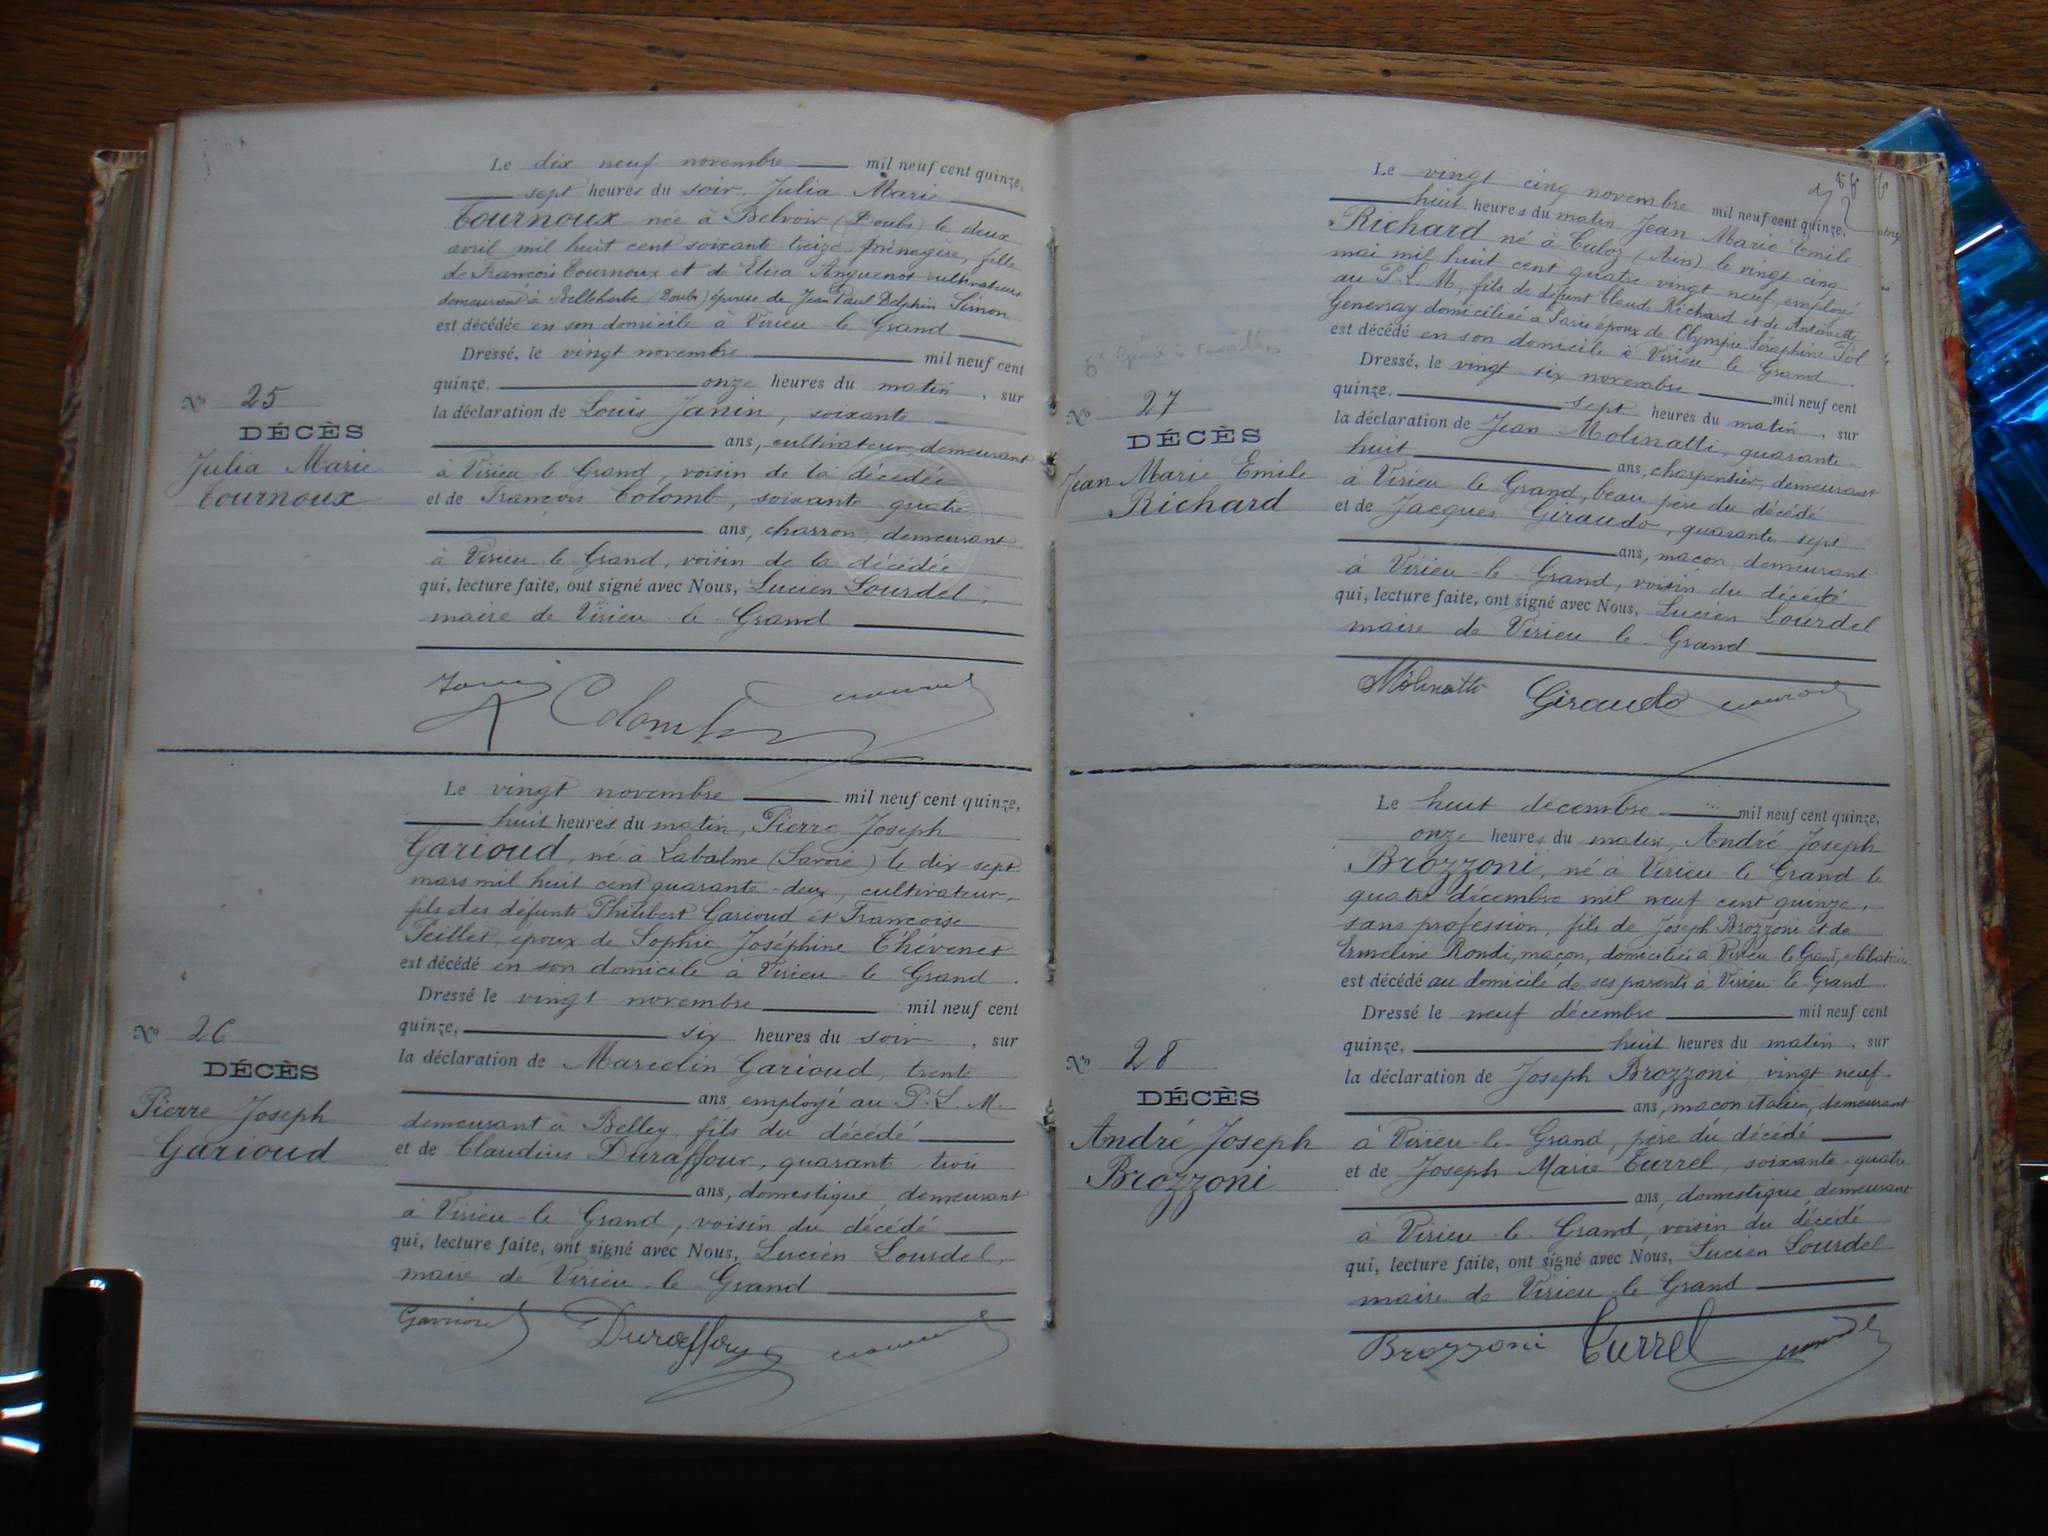 Le dix neuf novembre mil neuf cent quinze,
sept heures du soir, Julia Marie
Tournoux née à Belvoir (Doubs) le deux
avril mil huit cent soixante treize, ménagère, fille
de François Tournoux et de Elisa Anguenot cultivateurs
demeurant à Belleherbe (Doubs) épouse de Jean Paul Delphin Simon
est décédée en son domicile à Virieu-le-Grand
Dressé, le vingt novembre mil neuf cent
quinze. onze heures du matin, sur
No 25
la déclaration de Louis Janin, soixante
DÉCÈS
ans, cultivateur, demeurant
Julia Marie
à Virieu-le-Grand, voisin de la décédée
Tournoux
et de François Colomb, soixante quatre
ans, charron, demeurant
à Virieu-le-Grand, voisin de la décédée
qui, lecture faite, ont signé avec Nous, Lucien Lourdel,
maire de Virieu-le-Grand
Janin
Colomb
Le vingt novembre mil neuf cent quinze,
huit heures du matin, Pierre Joseph
Garioud, né à Labalme (Savoie) le dix-sept
mars mil huit cent quarante-deux, cultivateur,
fils des défunts Philibert Garioud et Françoise
Peillet, époux de Sophie Joséphine Thévenet
est décédé en son domicile à Virieu-le-Grand.
Dressé le vingt novembre mil neuf cent
quinze, six heures du soir, sur
No 26
la déclaration de Marcelin Garioud, trente
DÉCÈS
ans, employé au P.L.M.
Pierre Joseph
demeurant à Belley, fils du décédé
Garioud
et de Claudius Duraffour, quarante trois
ans, domestique, demeurant
à Virieu-le-Grand, voisin du décédé
qui, lecture faite, ont signé avec Nous, Lucien Lourdel,
maire de Virieu-le-Grand
Garioud Duraffour
Le vingt cinq novembre mil neuf cent quinze,
huit heures du matin Jean Marie Emile
Richard né à Culoz (Ain) le vingt cinq
mai mil huit cent quatre vingt neuf, employé
au P.L.M, fils de défunt Claude Richard et de Antoinette
Genevray domiciliée à Paris époux de Olympe Séraphine Pól
est décédé en son domicile à Virieu le Grand.
Dressé, le vingt six novembre mil neuf cent
quinze. sept heures du matin, sur
No 27
la déclaration de Jean Molinatti, quarante-
DÉCÈS
huit ans, charpentier, demeurant
Jean Marie Emile
à Virieu le Grand, beau père du décédé
Richard
et de Jacques Giraudo, quarante sept
ans, maçon, demeurant
à Virieu-le-Grand, voisin du décédé
qui, lecture faite, ont signé avec Nous, Lucien Lourdel
maire de Virieu-le-Grand
Molinatti Giraudo
Le huit décembre mil neuf cent quinze,
onze heures du matin, André Joseph
Brozzoni, né à Virieu-le-Grand le
quatre décembre mil neuf cent quinze,
sans profession, fils de Joseph Brozzoni et de
Ermeline Rondi, maçon, domiciliés à Virieu-le-Grand, célibataire
est décédé au domicile de ses parents à Virieu-le-Grand
Dressé le neuf décembre mil neuf cent
quinze, huit heures du matin, sur
No 28
la déclaration de Joseph Brozzoni, vingt-neuf
DÉCÈS
ans, maçon italien, demeurant
André Joseph
à Virieu-le-Grand, père du décédé
Brozzoni
et de Joseph Marie Turrel, soixante-quatre
ans, domestique, demeurant
à Virieu-le-Grand, voisin du décédé
qui, lecture faite, ont signé avec Nous, Lucien Lourdel
maire de Virieu-le-Grand
Brozzoni Turrel